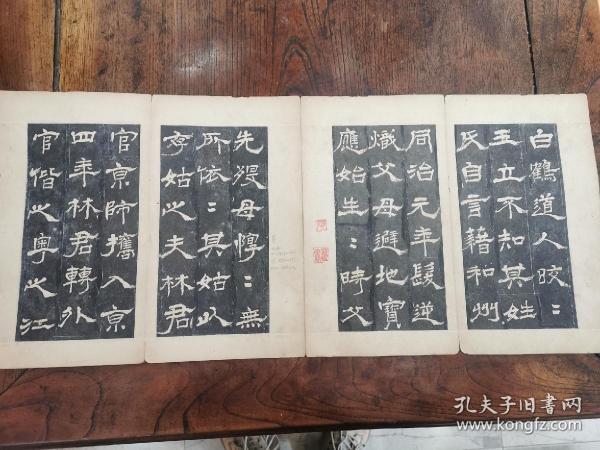 白鶴道人皎〻
玉立不知其姓
氏自言藉和州
同治元年髮逆
熾父母避地寶
應始生〻時父
先歿母惸〻無
所依〻其姑以
存姑之夫林君
官京師攜入京
四年林君轉外
官偕之粤之江
孔夫子旧書网
www.kongfz.com